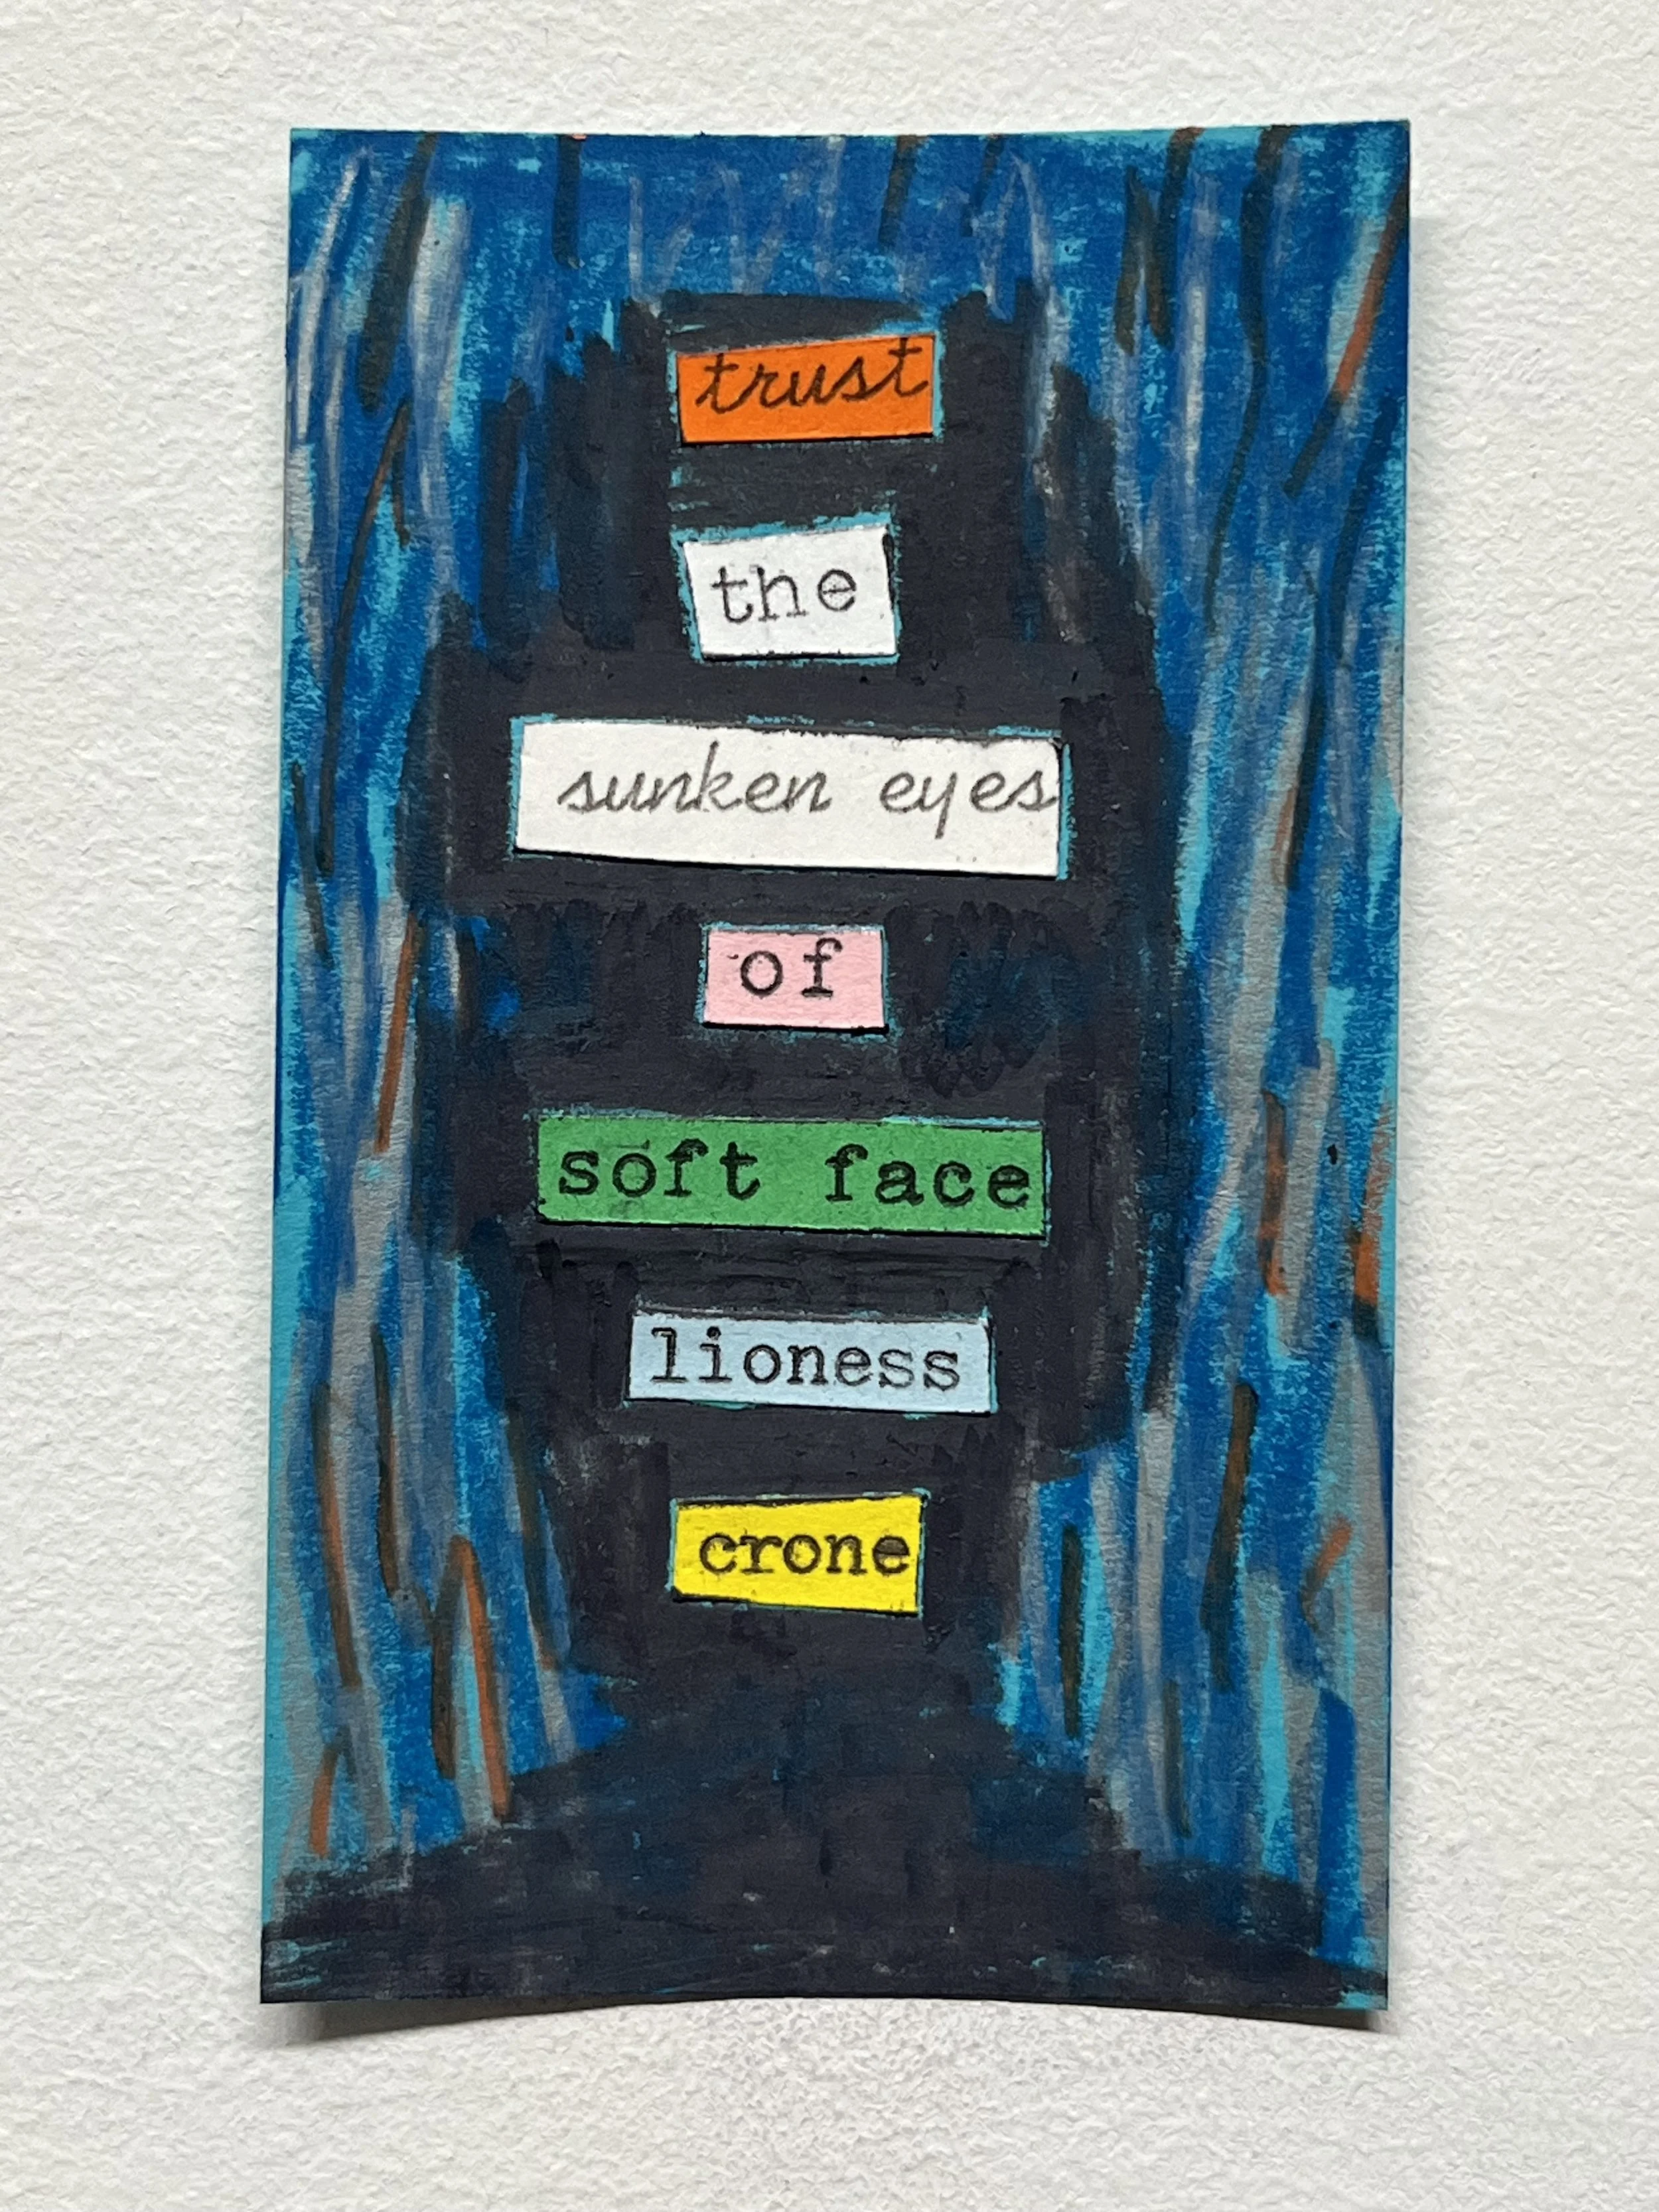 trust
the
sunken eyes
of
soft face
lioness
crone